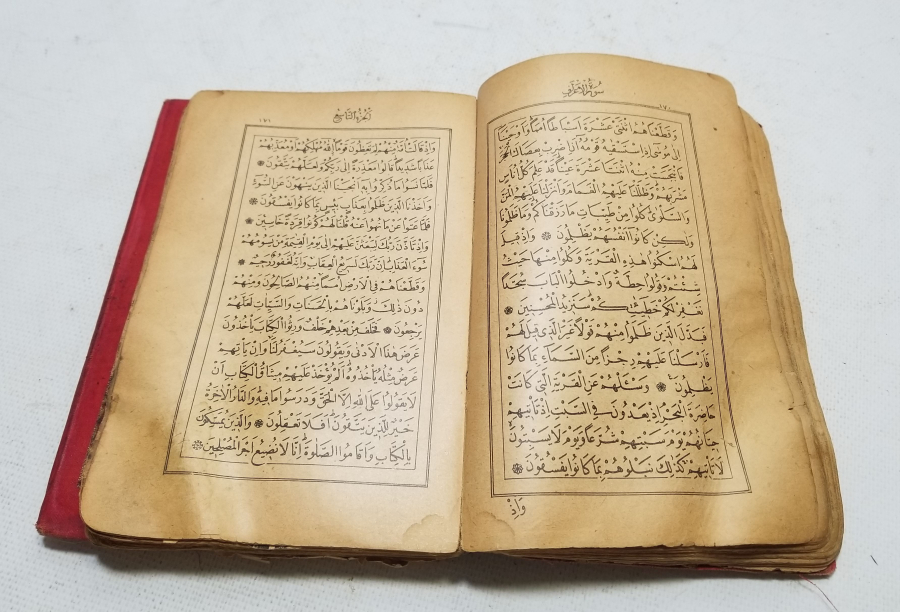 سُورَةُ الْاَعْرَافِ
١٧٠
وَقَطَّعْنَاهُمُ اثْنَتَىْ عَشْرَةَ اَسْبَاطًا اُمَمًا وَاَوْحَيْنَا
اِلٰى مُوسٰى اِذِ اسْتَسْقٰيهُ قَوْمُهُ اَنِ اضْرِبْ بِعَصَاكَ الْحَجَرَ
فَانْبَجَسَتْ مِنْهُ اثْنَتَا عَشْرَةَ عَيْنًا قَدْ عَلِمَ كُلُّ اُنَاسٍ
مَشْرَبَهُمْ وَظَلَّلْنَا عَلَيْهِمُ الْغَمَامَ وَاَنْزَلْنَا عَلَيْهِمُ الْمَنَّ
وَالسَّلْوٰى كُلُوا مِنْ طَيِّبَاتِ مَا رَزَقْنَاكُمْ وَمَا ظَلَمُونَا
وَلٰكِنْ كَانُوا اَنْفُسَهُمْ يَظْلِمُونَ ❁ وَاِذْ قِيلَ
لَهُمُ اسْكُنُوا هٰذِهِ الْقَرْيَةَ وَكُلُوا مِنْهَا حَيْثُ
شِئْتُمْ وَقُولُوا حِطَّةٌ وَادْخُلُوا الْبَابَ سُجَّدًا
نَغْفِرْ لَكُمْ خَطِيئَاتِكُمْ سَنَزِيدُ الْمُحْسِنِينَ ❁
فَبَدَّلَ الَّذِينَ ظَلَمُوا مِنْهُمْ قَوْلًا غَيْرَ الَّذِى قِيلَ لَهُمْ
فَاَرْسَلْنَا عَلَيْهِمْ رِجْزًا مِنَ السَّمَاءِ بِمَا كَانُوا
يَظْلِمُونَ ❁ وَسْئَلْهُمْ عَنِ الْقَرْيَةِ الَّتِى كَانَتْ
حَاضِرَةَ الْبَحْرِ اِذْ يَعْدُونَ فِى السَّبْتِ اِذْ تَأْتِيهِمْ
حِيتَانُهُمْ يَوْمَ سَبْتِهِمْ شُرَّعًا وَيَوْمَ لَا يَسْبِتُونَ
لَا تَأْتِيهِمْ كَذٰلِكَ نَبْلُوهُمْ بِمَا كَانُوا يَفْسُقُونَ ❁
وَاِذْ
اَلْجُزْءُ التَّاسِعُ
١٧١
وَاِذْ قَالَتْ اُمَّةٌ مِنْهُمْ لِمَ تَعِظُونَ قَوْمًا اللّٰهُ مُهْلِكُهُمْ اَوْ مُعَذِّبُهُمْ
عَذَابًا شَدِيدًا قَالُوا مَعْذِرَةً اِلٰى رَبِّكُمْ وَلَعَلَّهُمْ يَتَّقُونَ ❁
فَلَمَّا نَسُوا مَا ذُكِّرُوا بِهِ اَنْجَيْنَا الَّذِينَ يَنْهَوْنَ عَنِ السُّوءِ
وَاَخَذْنَا الَّذِينَ ظَلَمُوا بِعَذَابٍ بَئِيسٍ بِمَا كَانُوا يَفْسُقُونَ ❁
فَلَمَّا عَتَوْا عَنْ مَا نُهُوا عَنْهُ قُلْنَا لَهُمْ كُونُوا قِرَدَةً خَاسِئِينَ ❁
وَاِذْ تَاَذَّنَ رَبُّكَ لَيَبْعَثَنَّ عَلَيْهِمْ اِلٰى يَوْمِ الْقِيٰمَةِ مَنْ يَسُومُهُمْ
سُوءَ الْعَذَابِ اِنَّ رَبَّكَ لَسَرِيعُ الْعِقَابِ وَاِنَّهُ لَغَفُورٌ رَحِيمٌ ❁
وَقَطَّعْنَاهُمْ فِى الْاَرْضِ اُمَمًا مِنْهُمُ الصَّالِحُونَ وَمِنْهُمْ
دُونَ ذٰلِكَ وَبَلَوْنَاهُمْ بِالْحَسَنَاتِ وَالسَّيِّئَاتِ لَعَلَّهُمْ
يَرْجِعُونَ ❁ فَخَلَفَ مِنْ بَعْدِهِمْ خَلْفٌ وَرِثُوا الْكِتَابَ يَأْخُذُونَ
عَرَضَ هٰذَا الْاَدْنٰى وَيَقُولُونَ سَيُغْفَرُ لَنَا وَاِنْ يَأْتِهِمْ
عَرَضٌ مِثْلُهُ يَأْخُذُوهُ اَلَمْ يُؤْخَذْ عَلَيْهِمْ مِيثَاقُ الْكِتَابِ اَنْ
لَا يَقُولُوا عَلَى اللّٰهِ اِلَّا الْحَقَّ وَدَرَسُوا مَا فِيهِ وَالدَّارُ الْاٰخِرَةُ
خَيْرٌ لِلَّذِينَ يَتَّقُونَ اَفَلَا تَعْقِلُونَ ❁ وَالَّذِينَ يُمَسِّكُونَ
بِالْكِتَابِ وَاَقَامُوا الصَّلٰوةَ اِنَّا لَا نُضِيعُ اَجْرَ الْمُصْلِحِينَ ❁